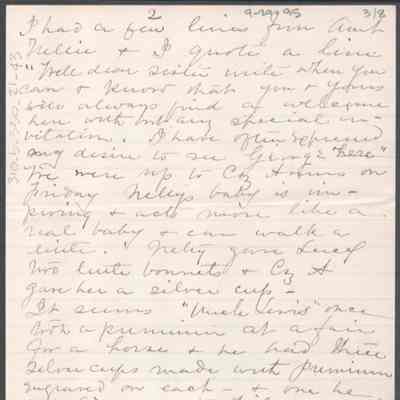 2
3/8
I had a few lines from Aunt
Nellie & I quote a line
"Well dear sister write when you
can & know that you & yours
will always find a welcome
here without any special in-
vitation. I have often expressed
my desire to see George "here"
We were up to Co on
Friday Nellys baby is im-
proving & acts more like a
real baby & can walk a
little. gave Lucy
two little bonnets &
gave her a silver cup -
It seems "Uncle Lewis" once
took a premium at a fair
for a horse & he had three
silver cups made with premium
engraved on each - & one he